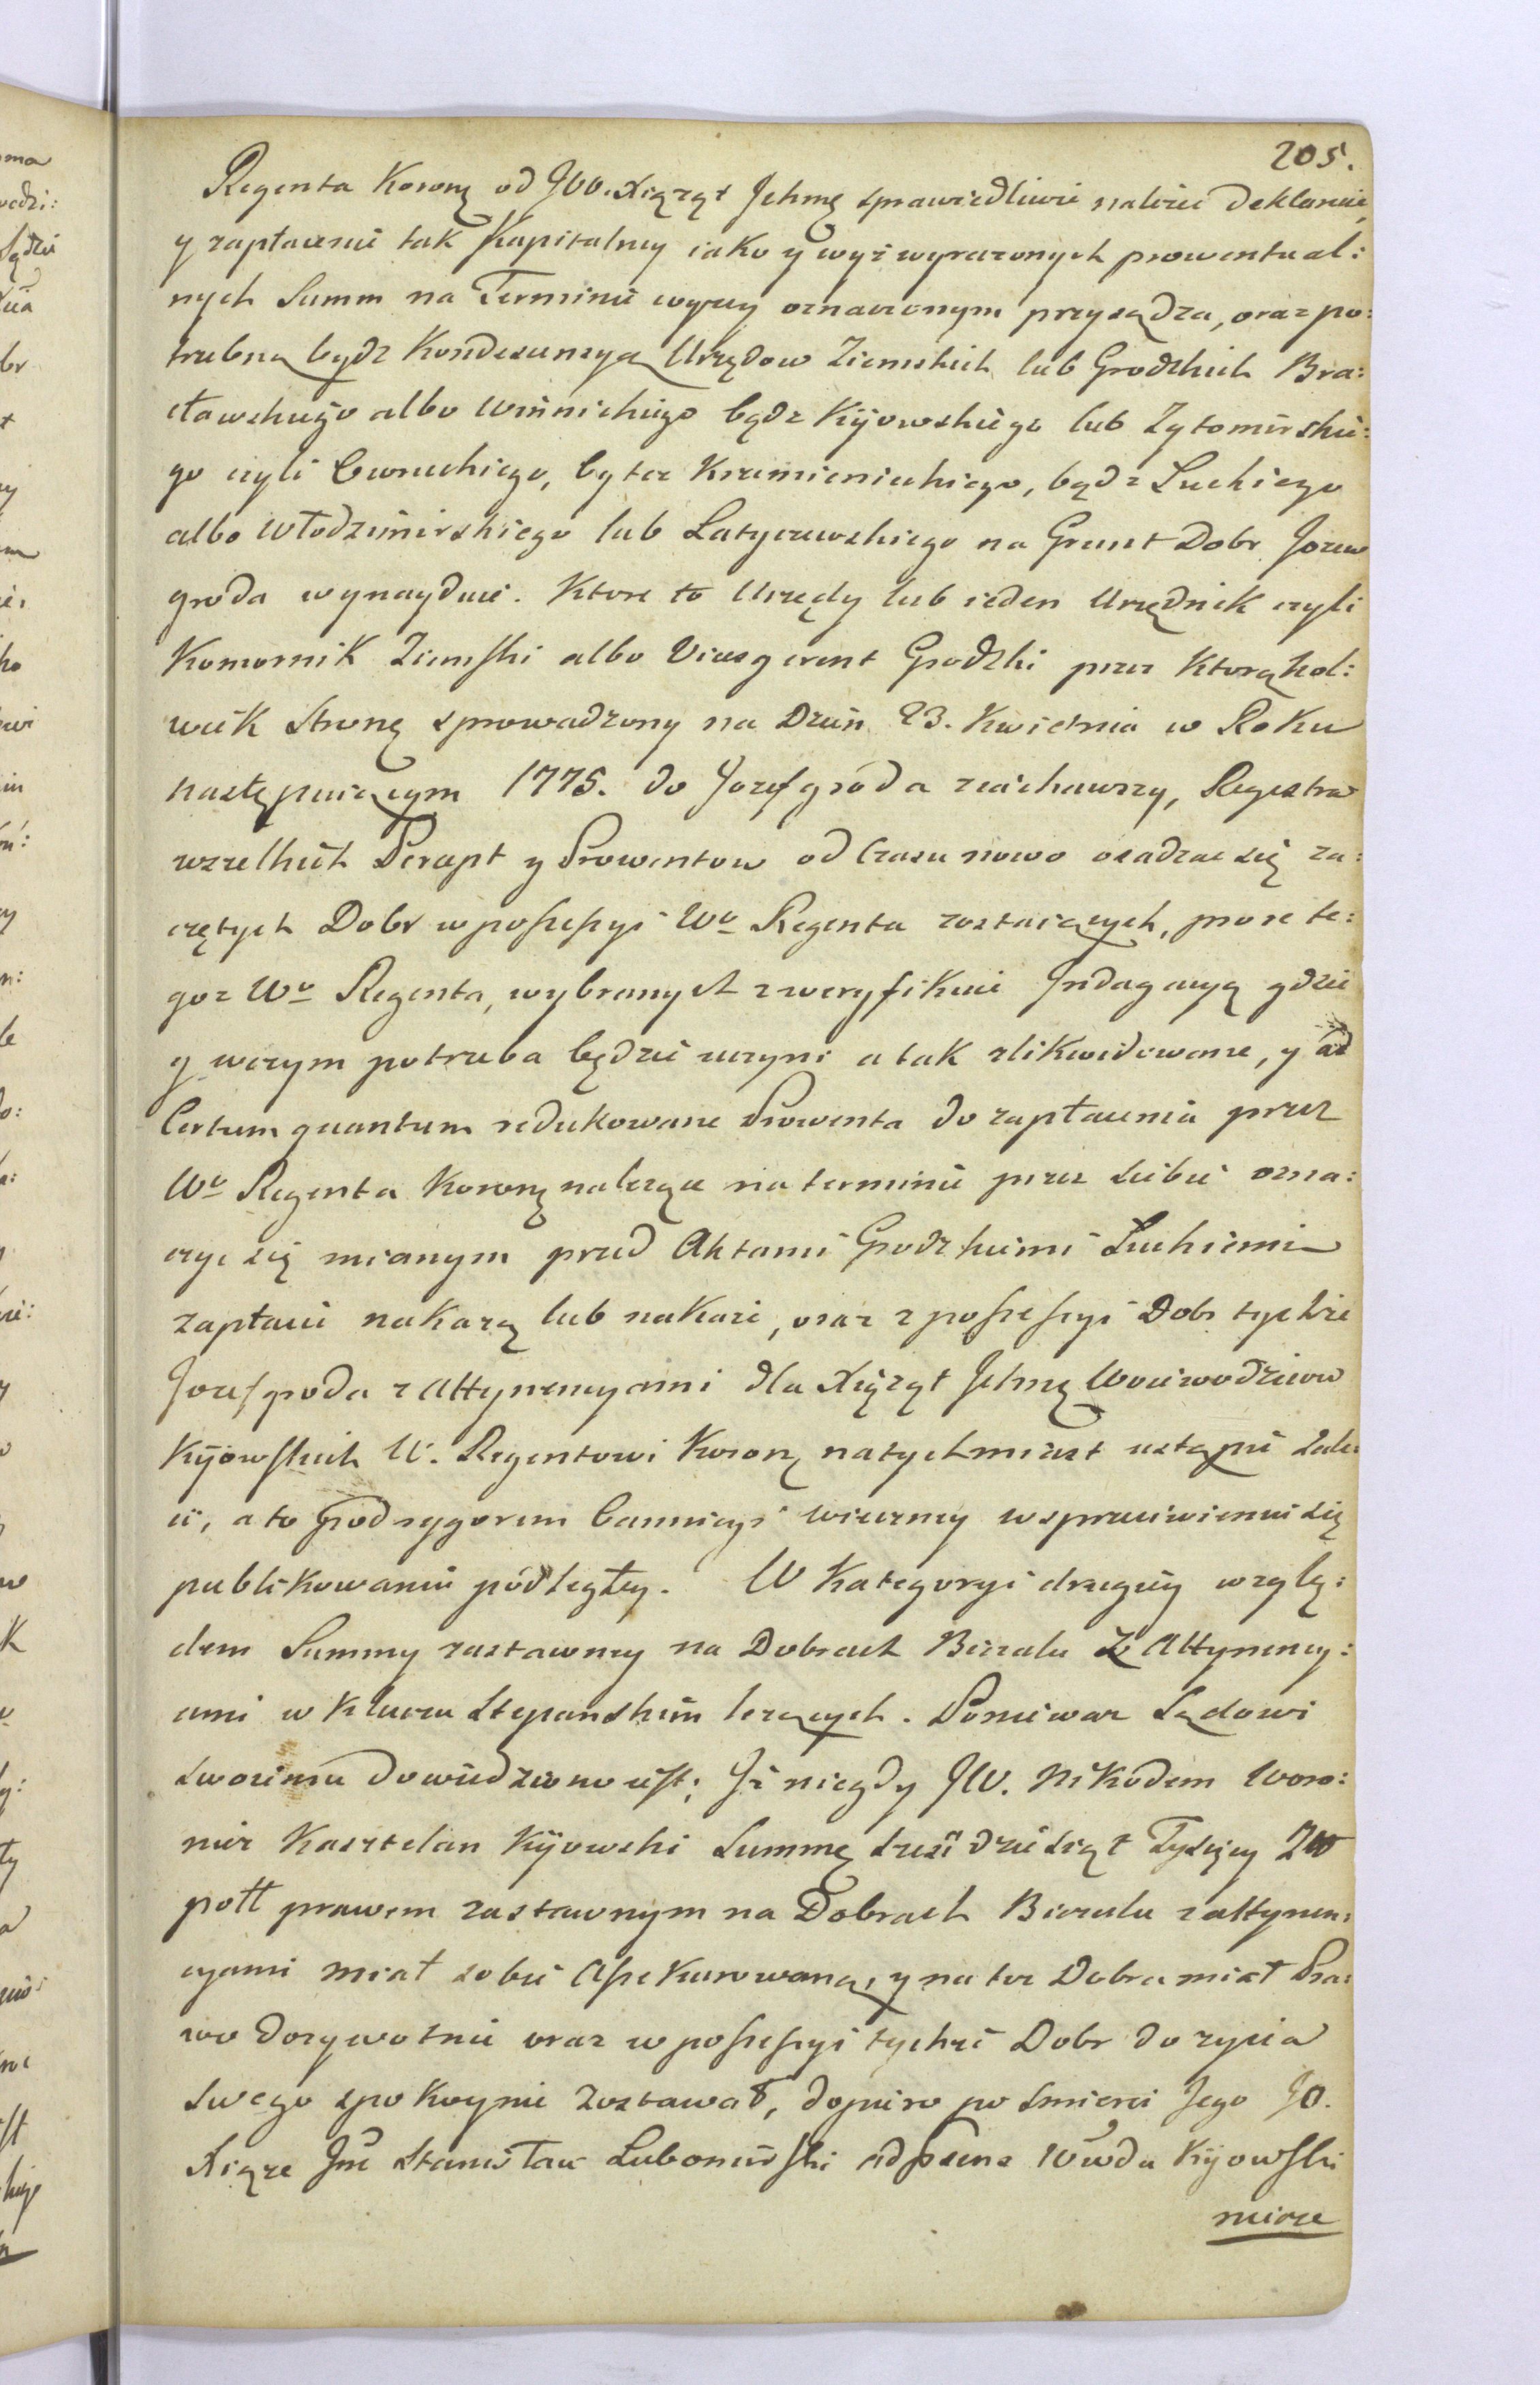 205.
Regenta Koronę od JOO. Xiążąt Jchmę sprawiedliwie należeć deklaruie,
y zapłacenie tak Kapitalney iako y wyż wyrazonych prowentual:
nych Summ na Terminie wyzey oznaczonym przysądza, oraz po:
trzebną bydz Kondescensyą Urzędow Ziemskich lub Grodzkich Bra:
cławskiego albo Winnickiego bądz Kijowskiego lub Zytomirskie:
go czyli Owruckiego, bytez Krzemienieckiego, bądz Luckiego
albo Włodzimirskiego lub Latyczewskiego na Grunt Dobr Jozew
groda wynayduie. Ktore to Urzędy lub ieden Urzędnik czyli
Komornik Ziemski albo Vicesgerent Grodzki przez Ktorąkol:
wiek stronę sprowadzony na Dzień 23. Kwietnia w Roku
następuiącym 1775. do Jozefgroda zeiachawszy, Regestra
wszelkich Percept y Prowentow od Czasu nowo osadzac się za:
czętych Dobr w possessyi Wo Regenta zostaiących, przez te:
goz Wo Regenta, wybranych zweryfikuie Jndagacyą gdzie
y wczym potrzeba będzie uczyni a tak zlikwidowane, y ad
Certum quantum redukowane Prowenta do zapłacenia przez
Wo Regenta Koronę nalezące na terminie przez siebie ozna:
czyc się mianym przed Aktami Grodzkiemi Luckiemi
zapłacić nakazą lub nakaże, oraz z possessyi Dobr tychże
Jozefgroda z Attynencyami dla Xiążąt Jchmę Woiewodziców
Kijowskich U. Regentowi Koronę natychmiast ustąpić zale:
ci, a to pod rygorem Bannicyi wieczney wsprzeciwieniu się
publikowaniu podległey. W Kategoryi drugiey wzglę:
dem Summy zastawney na Dobrach Berzalu z Attynency:
ami w Kluczu Stepanskim lezących. Poniewaz Sądowi
swoiemu dowiedziono iest; Jż niegdy JW. Nikodem Woro:
nicz Kasztelan Kijowski Summę sześćdziesiąt Tysięcy Złł
poll prawem zastawnym na Dobrach Berzalu z attynen:
cyami miał sobie Assekurowaną, y na tez Dobra miał Pra:
wo dozywotnie oraz w possessyi tychże Dobr do zycia
swego spokoynie zostawał, dopiero po smierci Jego JO.
Xiąże Jmć Stanisław Lubomirski adpraesens Wwda Kijowski